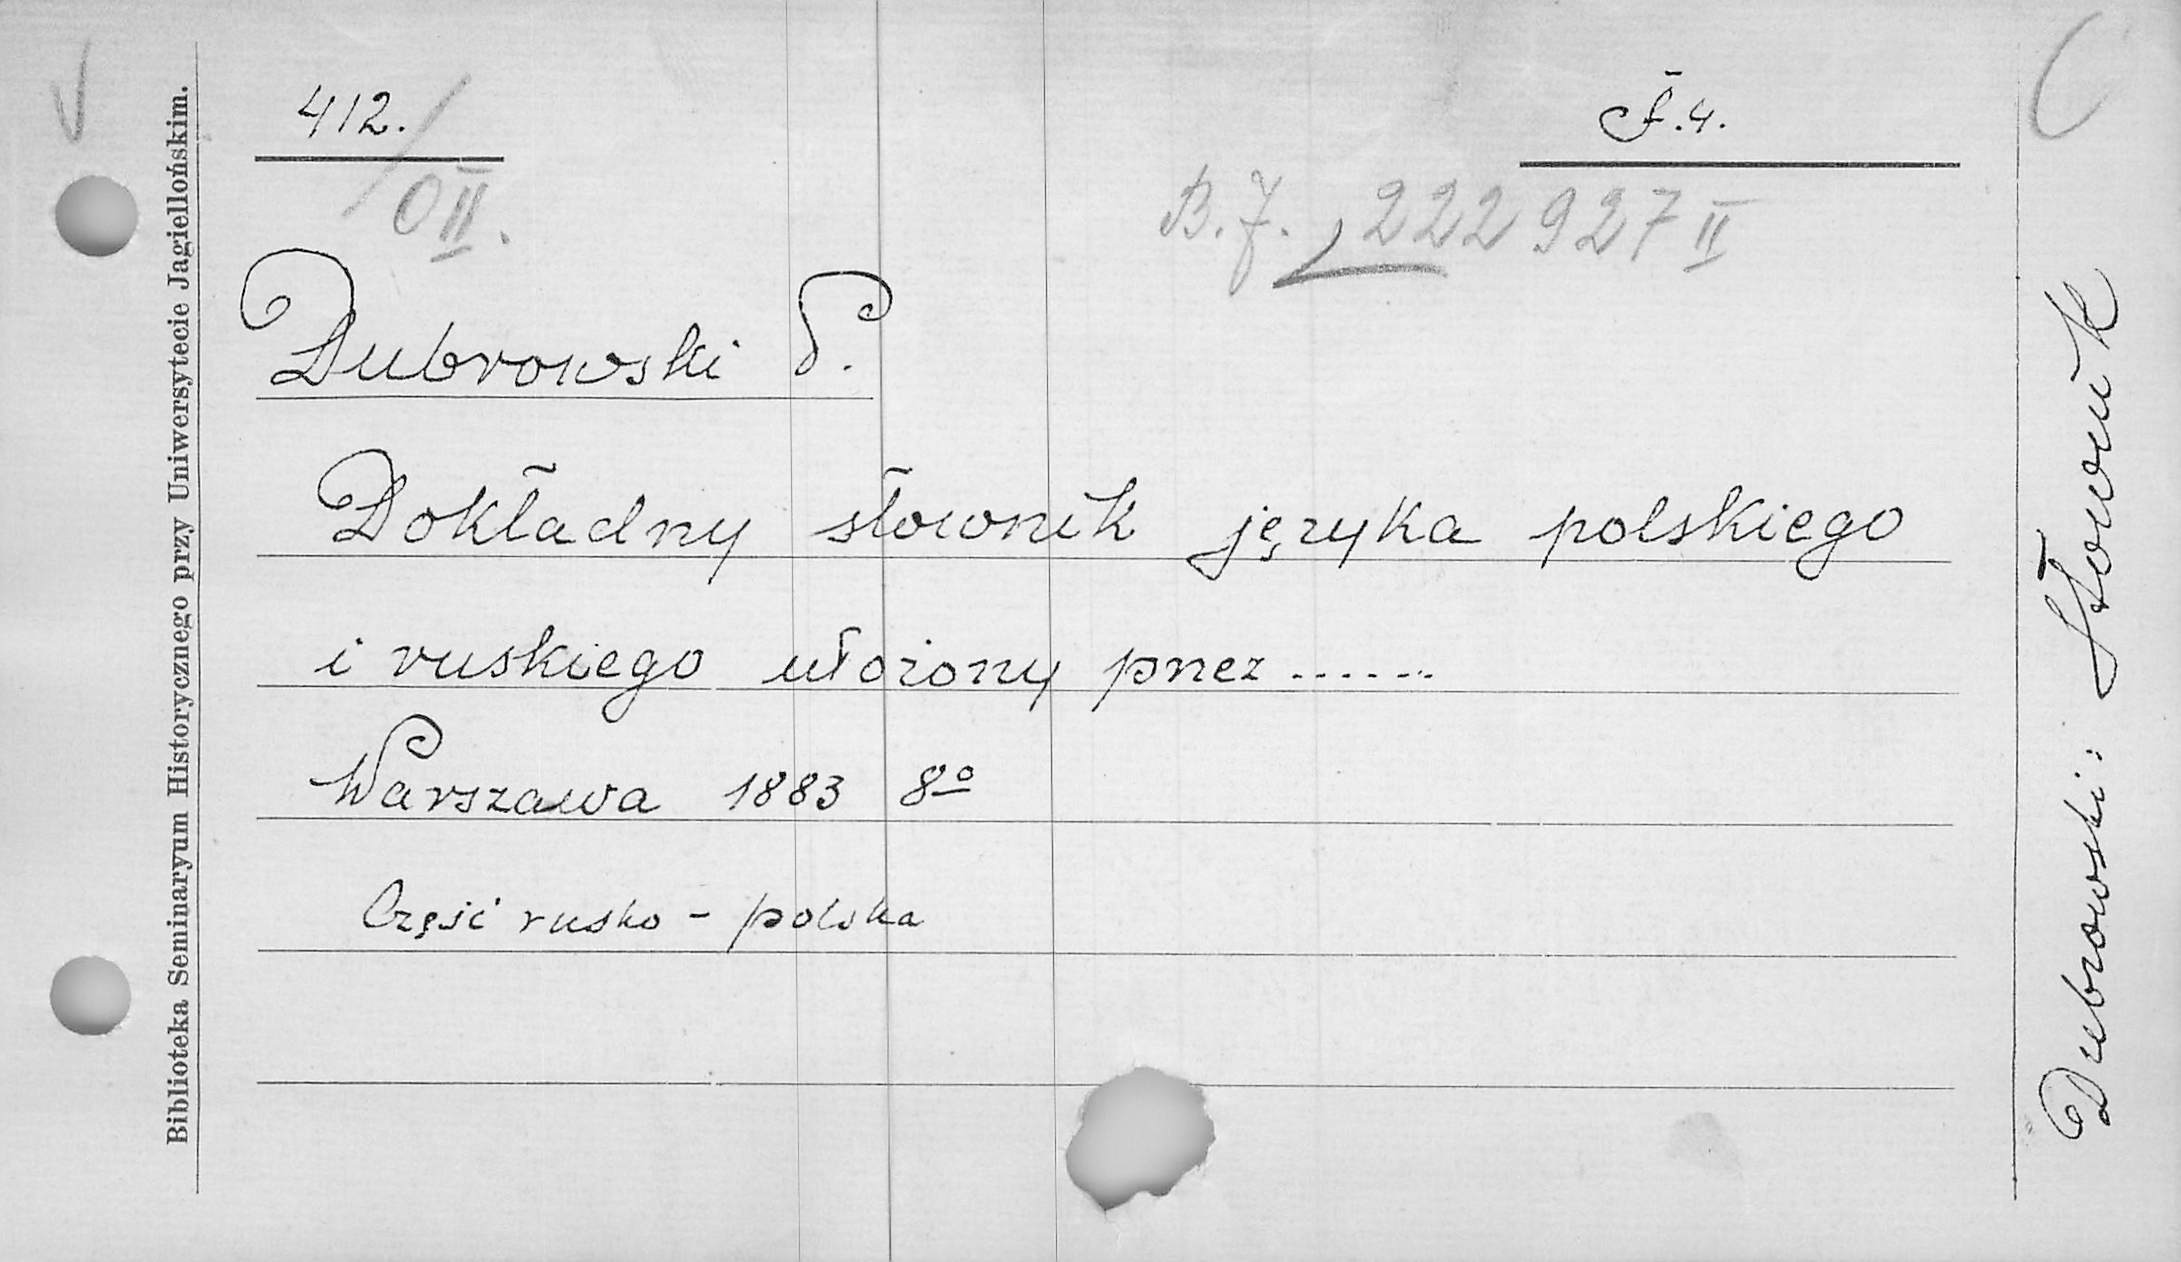 412.
O II.
f.4.
B.J. 222 927 II
Dubrowski P.
Dokładny słownik języka polskiego
i ruskiego ułożony przez ......
Warszawa 1883 8o
Część rusko - polska
Biblioteka Seminaryum Historycznego przy Uniwersytecie Jagiellońskim.
Dubrowski: Słownik